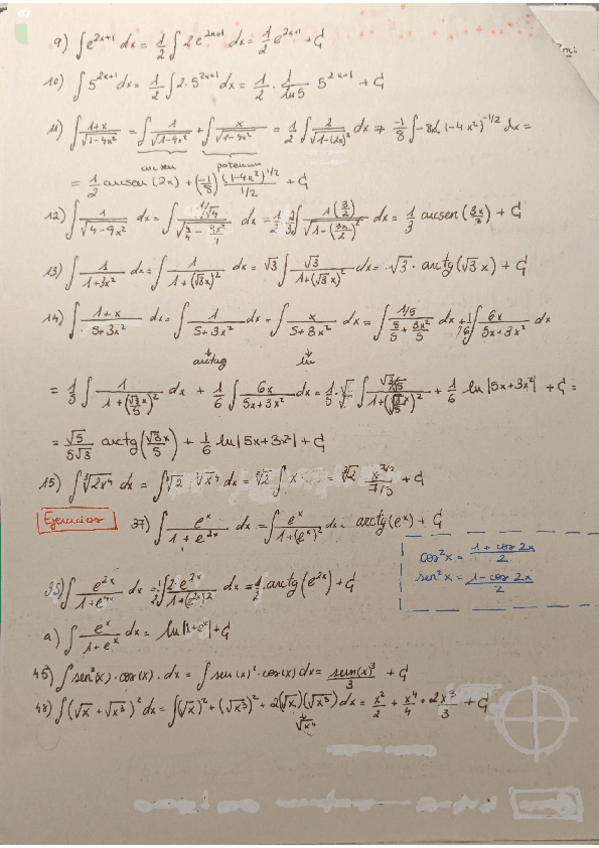 9) ∫e^{2x+1} dx = 1/2 ∫ 2e^{2x+1} dx = 1/2 e^{2x+1} + C
10) ∫ 5^{2x+1} dx = 1/2 ∫ 2·5^{2x+1} dx = 1/2 · 1/ln5 · 5^{2x+1} + C
11) ∫ (1+x)/√(1-4x²) = ∫ 1/√(1-4x²) + ∫ x/√(1-4x²) = 1/2 ∫ 2/√(1-(2x)²) dx + -1/8 ∫ -8x(1-4x²)^{-1/2} dx =
arcsen potencia
= 1/2 arcsen(2x) + (-1/8) (1-4x²)^{1/2}/(1/2) + C
12) ∫ 1/√(4-9x²) dx = ∫ (1/√4)/√(4/4 - 9x²/4) dx = 1/2 · 2/3 ∫ 1(3/2)/√(1-(3x/2)²) dx = 1/3 arcsen(3x/2) + C
13) ∫ 1/(1+3x²) dx = ∫ 1/(1+(√3x)²) dx = √3 ∫ √3/(1+(√3x)²) dx = √3 · arctg(√3x) + C
14) ∫ (1+x)/(5+3x²) dx = ∫ 1/(5+3x²) dx + ∫ x/(5+3x²) dx = ∫ (1/5)/(5/5 + 3x²/5) dx + 1/6 ∫ 6x/(5x+3x²) dx
arctg ln
= 1/5 ∫ 1/(1+(√3x/5)²) dx + 1/6 ∫ 6x/(5x+3x²) dx = 1/5 · ∫ /(1+(√3x/5)²) + 1/6 ln|5x+3x²| + C =
= √5/(5√3) arctg(√3x/5) + 1/6 ln|5x+3x²| + C
15) ∫ ∛(2x⁴) dx = ∫ ∛2 ∛x⁴ dx = ∛2 ∫ x = ∛2 x^{7/3}/(7/3) + C
Ejercicios 37) ∫ e^x/(1+e^{2x}) dx = ∫ e^x/(1+(e^x)²) dx = arctg(e^x) + C
cos²x = (1+cos 2x)/2
sen²x = (1-cos 2x)/2
35) ∫ e^{2x}/(1+e^{4x}) dx = 1/2 ∫ 2·e^{2x}/(1+(e^{2x})²) dx = 1/2 · arctg(e^{2x}) + C
a) ∫ e^x/(1+e^x) dx = ln|1+e^x| + C
45) ∫ sen²(x)·cos(x)·dx = ∫ sen(x)²·cos(x) dx = sen(x)³/3 + C
48) ∫(√x + √x³)² dx = ∫(√x)² + (√x³)² + 2(√x)(√x³) dx = x²/2 + x⁴/4 + 2x³/3 + C
√x⁴